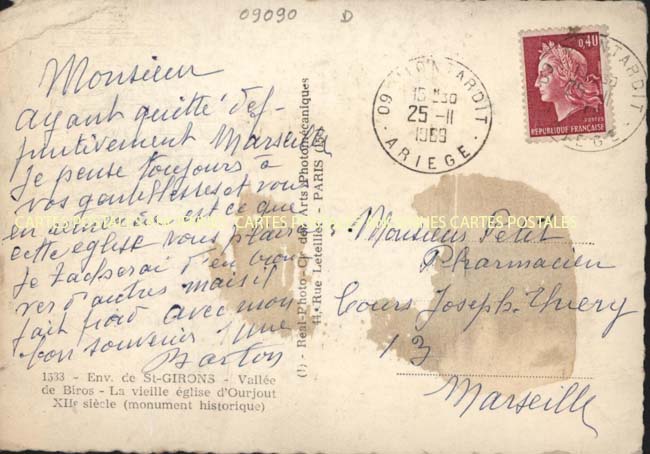 09090 D
Monsieur
ayant quitté déf-
initivement Marseille
Je pense toujours à
vos gentillesses et vous
en remercie est ce que
cette église vous plaira
Je tacherai d'en trou
ver d'autres mais il
fait froid avec mon
bon souvenir Mme
Barton
1533 - Env. de St-GIRONS - Vallée
de Biros - La vieille église d'Ourjout
XIIe siècle (monument historique)
Real-Photo - Cie des Arts Photomécaniques
44, Rue Letellier - PARIS
25 -11
1969
ARIEGE
0,40
POSTES
REPUBLIQUE FRANÇAISE
Monsieur Petit
Pharmacien
Cours Joseph-Thierry
13
Marseille
CARTES POSTALES ANCIENNES CARTES POSTALES